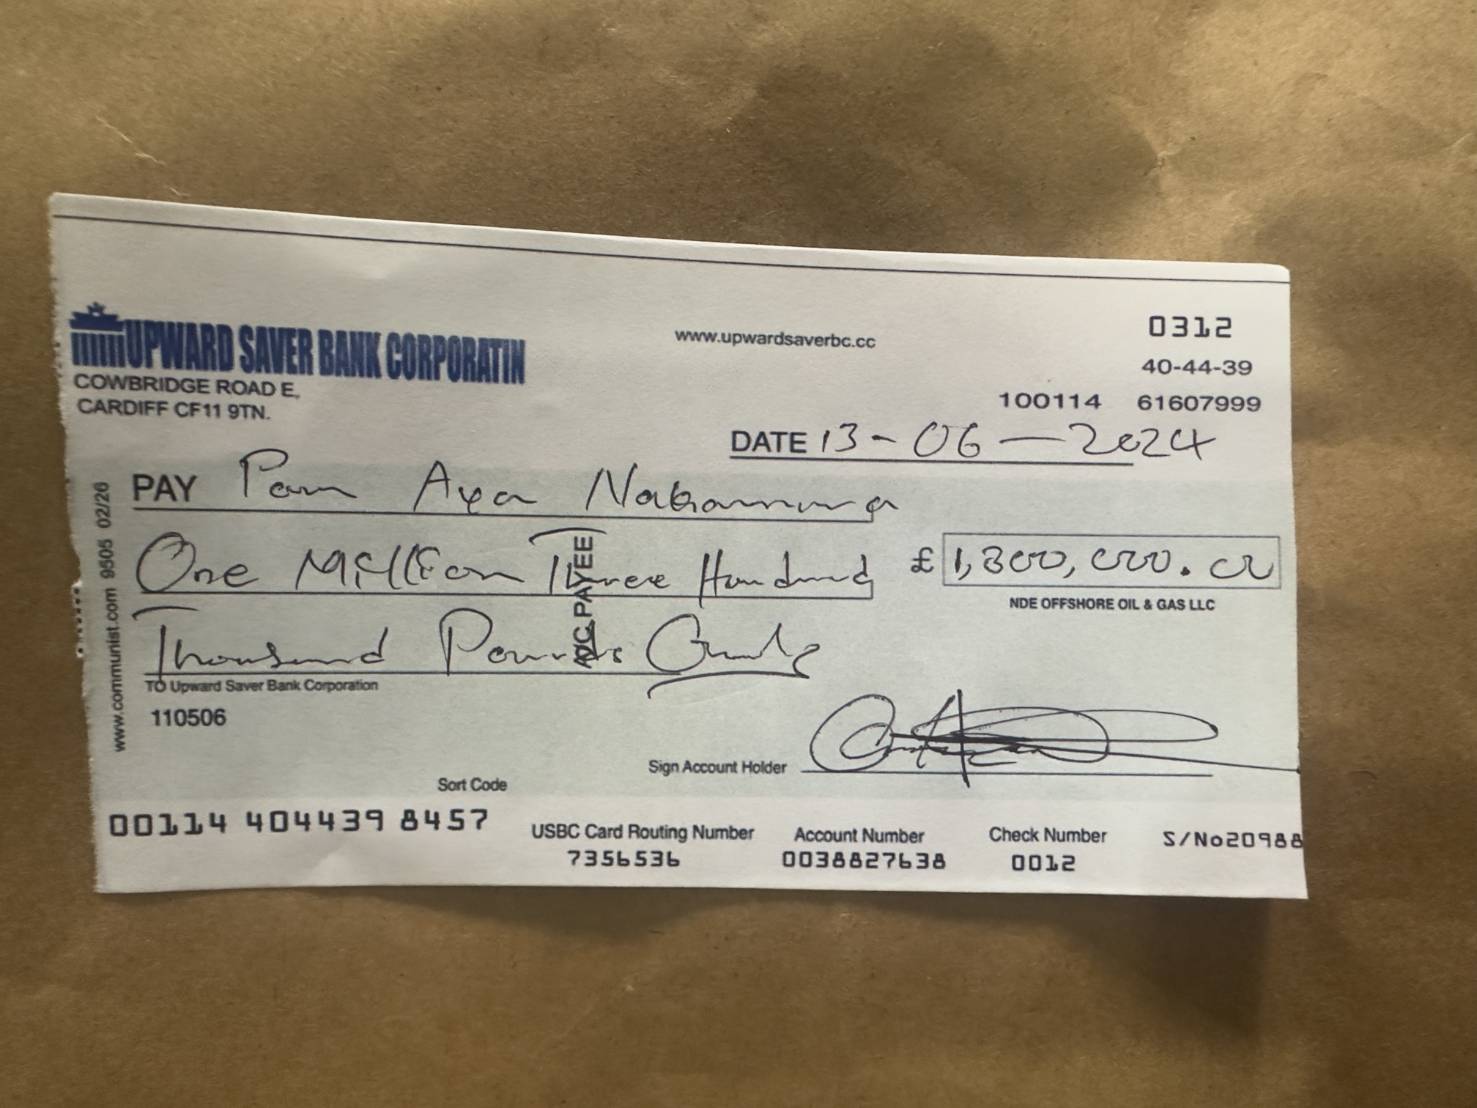 UPWARD SAVER BANK CORPORATIN
COWBRIDGE ROAD E,
CARDIFF CF11 9TN.
www.upwardsaverbc.cc
0312
40-44-39
100114 61607999
DATE 13-06-2024
PAY Pam Aya Nakamura
One Million Three Hundred
£ 1,300,000.00
NDE OFFSHORE OIL & GAS LLC
Thousand Pounds Only
A/C PAYEE
TO Upward Saver Bank Corporation
110506
www.communist.com 9505 02/26
Sign Account Holder
Sort Code
00114 404439 8457
USBC Card Routing Number
7356536
Account Number
0038827638
Check Number
0012
S/No20988